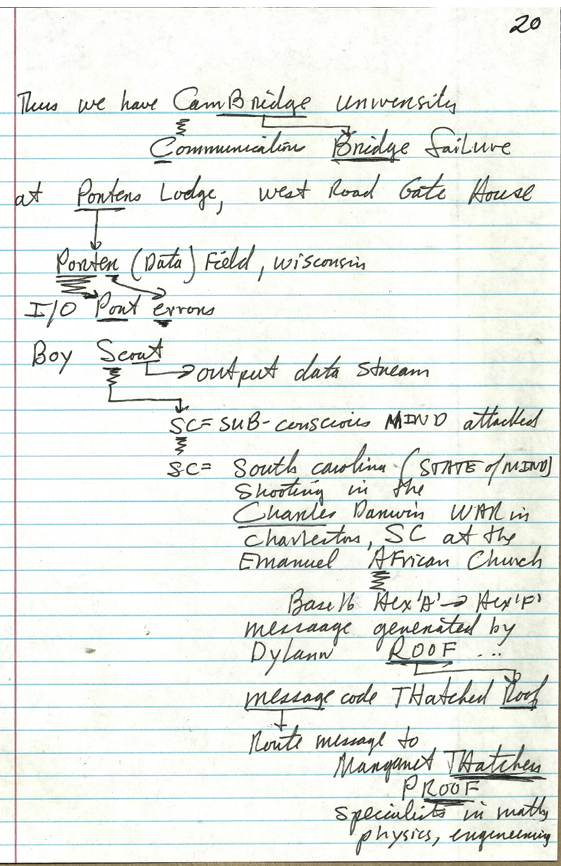 20
Thus we have CamBridge University
Communication Bridge failure
at Porters Lodge, West Road Gate House
Porter (Data) Field, Wisconsin
I/O Port errors
Boy Scout
output data stream
SC= SUB-conscious MIND attacked
SC= South Carolina (STATE of MIND)
Shooting in the
Charles Darwin WAR in
Charleston, SC at the
Emanuel African Church
Base 16 Hex 'A' → Hex 'F'
messaage generated by
Dylann ROOF ...
message code THatched Roof
Route message to
Margaret THatcher
PROOF
specialists in math,
physics, engineering